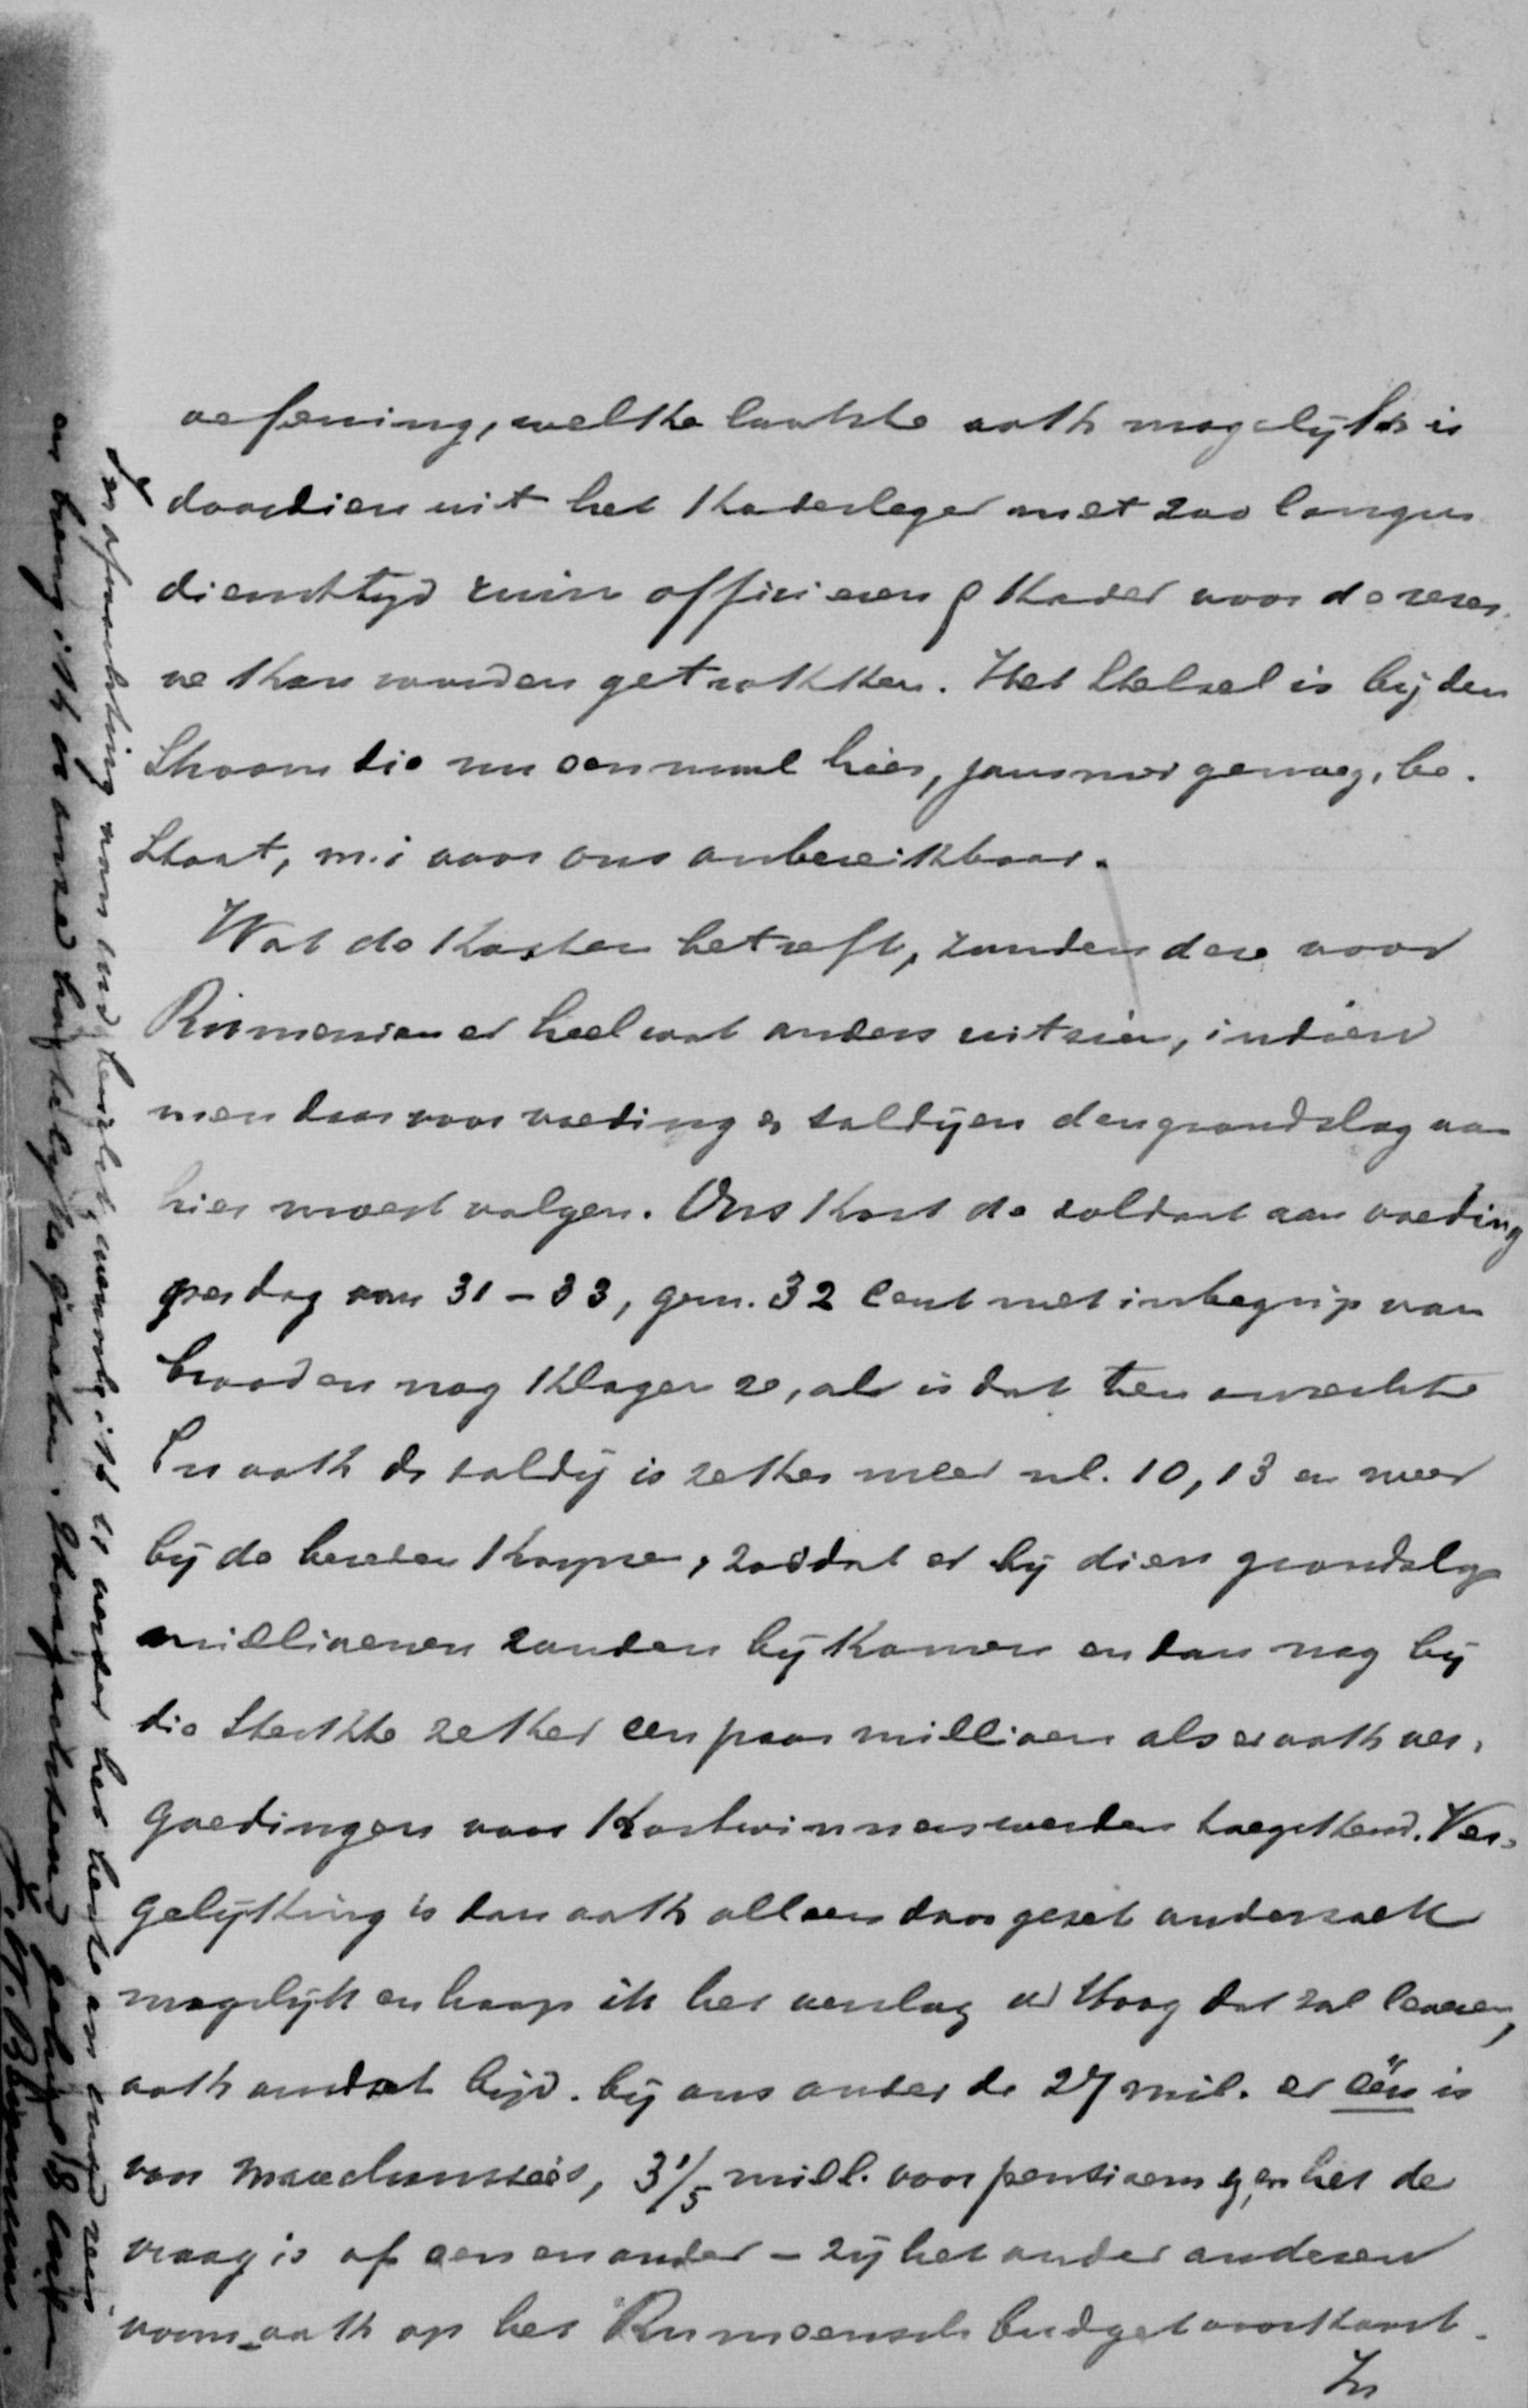 oefening, welke laatste ook mogelijk is
doordien uit het kaderleger met zoo langen
diensttijd ruim officieren & kader voor de reser-
ve kan worden getrokken. Het stelsel is bij den
stroom die nu eenmaal hier, jammer genoeg, be-
staat, m.i voor ons onbereikbaar.
Wat de kosten betreft, zouden deze voor
Rumenien er heel wat anders uitzien, indien
men daar voor voeding & soldijen den grondslag van
hier moest volgen. Ons kost de soldaat aan voeding
per dag van 31 - 33, gem. 32 cent met inbegrip van
brood en nog klagen ze, al is dat ten onrechte
En ook de soldij is zeker meer nl. 10, 13 en meer
bij de bereden korpsen, zoodat er bij dien grondslag
millioenen zouden bijkomen en dan nog bij
die sterkte zeker een paar millioen als er ook ver-
goedingen voor kostwinners werden toegekend. Ver-
gelijking is dan ook alleen door gezet onderzoek
mogelijk en hoop ik het verslag vd Hoog dat zal leveren,
ook omdat bijv. bij ons onder de 27 mil. er één is
voor maréchaussées, 3 1/5 mill. voor pensioenen, en het de
vraag is of een en ander - zij het onder anderen
vorm - ook op het Rumeensch budget voorkomt.
In
In afwachting van Uw bericht, waarvoor ik U verder het beste en moed zeer
en breng ik U onze hartelijke groeten. Hoogachtend